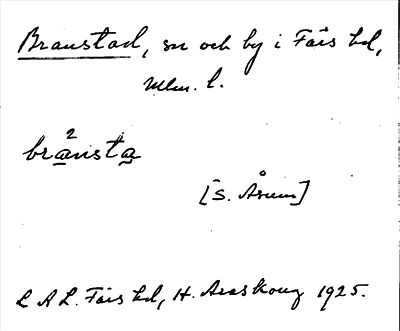 Branstad, sn och by i Färs hd,
Mlm. l.
2
bransta
[S. Åsum]
L A L. Färs hd, H. Areskoug 1925.